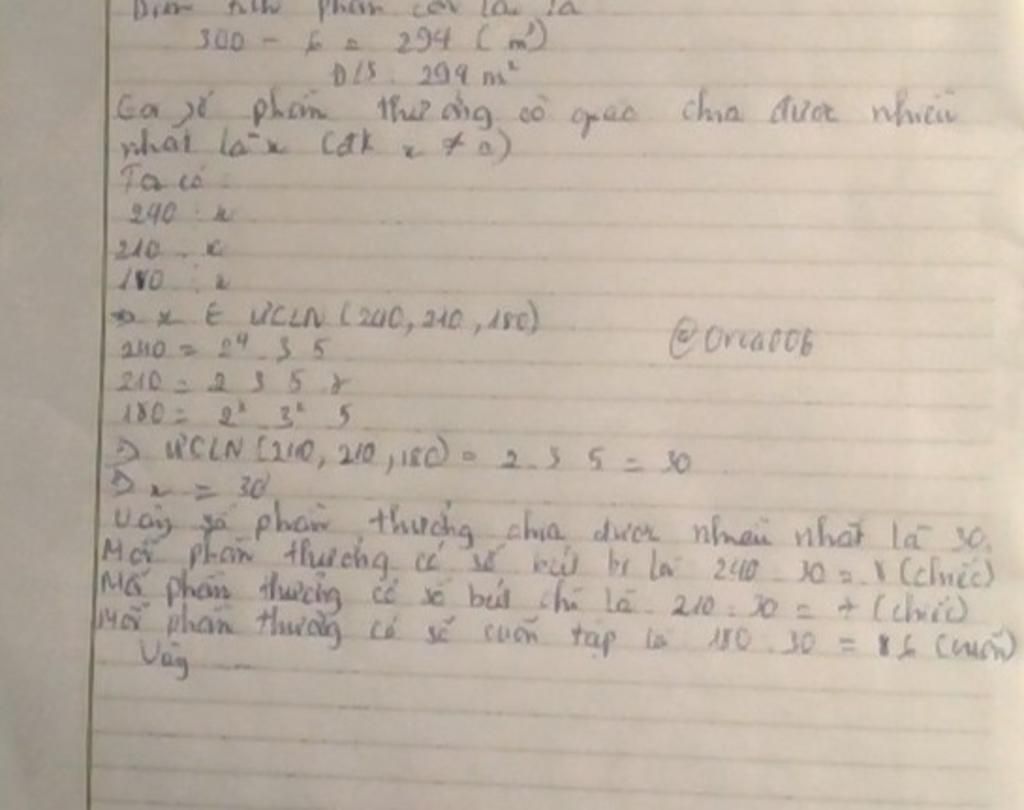 Diện tích phần còn lại là
300 - 6 = 294 (m²)
Đ/S: 294 m²
Gọi số phần thưởng cô giáo chia được nhiều
nhất là x (đk x ≠ 0)
Ta có:
240 : x
210 : x
180 : x
=> x ∈ ƯCLN (240, 210, 180)
240 = 2⁴ . 3 . 5
210 = 2 . 3 . 5 . 7
180 = 2² . 3² . 5
=> ƯCLN (240, 210, 180) = 2 . 3 . 5 = 30
=> x = 30
Vậy số phần thưởng chia được nhiều nhất là 30.
Mỗi phần thưởng có số bút bi là 240 : 30 = 8 (chiếc)
Mỗi phần thưởng có số bút chì là 210 : 30 = 7 (chiếc)
Mỗi phần thưởng có số cuốn tập là 180 : 30 = 6 (cuốn)
Vậy ...
@Orca006